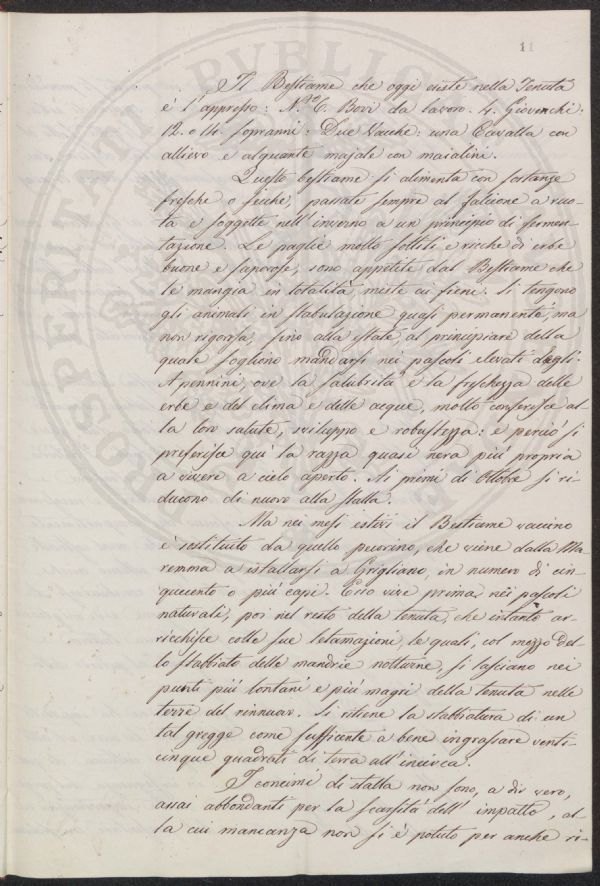 11
Il Bestiame che oggi esiste nella Tenuta
è l'appresso: N.ro 6. Bovi da lavoro. 4. Giovenchi:
12. o 14. sopranni: Due Vacche: una Cavalla con
allievo e alquante majale con maialini.
Questo bestiame si alimenta con sostanze
fresche o secche, passate sempre al falcione a ruo-
ta e soggette nell'inverno a un principio di fermen-
tazione. Le paglie molto sottili e ricche di erbe
buone e saporose, sono appetite dal Bestiame che
le mangia in totalità, miste ai fieni. Si tengono
gli animali in stabulazione quasi permanente, ma
non rigorosa, fino alla estate, al principiare della
quale sogliono mandarsi nei pascoli elevati degli
Apennini, ove la salubrità e la freschezza delle
erbe e del clima e delle acque, molto conferisce al-
la loro salute, sviluppo e robustezza: e perciò si
preferisce quì la razza quasi nera più propria
a vivere a cielo aperto. Ai primi di Ottobre si ri-
ducono di nuovo alla stalla.
Ma nei mesi estivi il Bestiame vaccino
è sostituito da quello pecorino, che viene dalla Ma-
remma a istallarsi a Grigliano, in numero di cin-
quecento o più capi. Esso vive prima nei pascoli
naturali, poi nel resto della tenuta, che intanto ar-
ricchisce colle sue letamazioni, le quali, col mezzo del-
lo stabbiato delle mandrie notturne, si lasciano nei
punti più lontani e più magri della tenuta nelle
terre del rinnuovo. Si ritiene la stabbiatura di un
tal gregge come sufficente a bene ingrassare venti-
cinque quadrati di terra all'incirca.
I concimi di stalla non sono, a dir vero,
assai abbondanti per la scarsità dell'impatto, al-
la cui mancanza non si è potuto per anche ri-
PROSPERITATI PVBLICAE